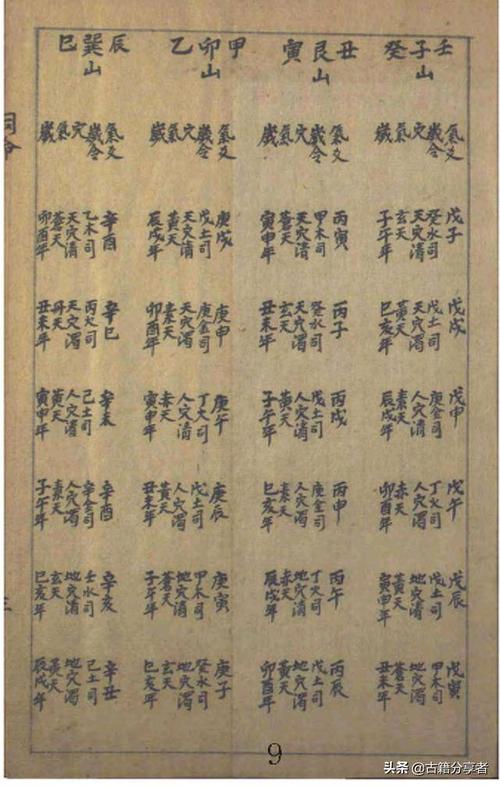 壬子癸
山
氣爻 歲令 穴 氣 歲
戊子 癸水司 天穴清 玄天 子午年
戊戌 戊土司 天穴濁 黃天 巳亥年
戊申 庚金司 人穴清 素天 辰戌年
戊午 丁火司 人穴濁 赤天 卯酉年
戊辰 戊土司 地穴清 黃天 寅申年
戊寅 甲木司 地穴濁 蒼天 丑未年
丑艮寅
山
氣爻 歲令 穴 氣 歲
丙寅 甲木司 天穴清 蒼天 寅申年
丙子 癸水司 天穴濁 玄天 丑未年
丙戌 戊土司 人穴清 黃天 子午年
丙申 庚金司 人穴濁 素天 巳亥年
丙午 丁火司 地穴清 赤天 辰戌年
丙辰 戊土司 地穴濁 黃天 卯酉年
甲卯乙
山
氣爻 歲令 穴 氣 歲
庚戌 戊土司 天穴清 黃天 辰戌年
庚申 庚金司 天穴濁 素天 卯酉年
庚午 丁火司 人穴清 赤天 寅申年
庚辰 戊土司 人穴濁 黃天 丑未年
庚寅 甲木司 地穴清 蒼天 子午年
庚子 癸水司 地穴濁 玄天 巳亥年
辰巽巳
山
氣爻 歲令 穴 氣 歲
辛酉 乙木司 天穴清 蒼天 卯酉年
辛巳 丙火司 天穴濁 丹天 丑未年
辛未 己土司 人穴清 黃天 寅申年
辛酉 辛金司 人穴濁 素天 子午年
辛亥 壬水司 地穴清 玄天 巳亥年
辛丑 己土司 地穴濁 黃天 辰戌年
9
头条 @古籍分享者